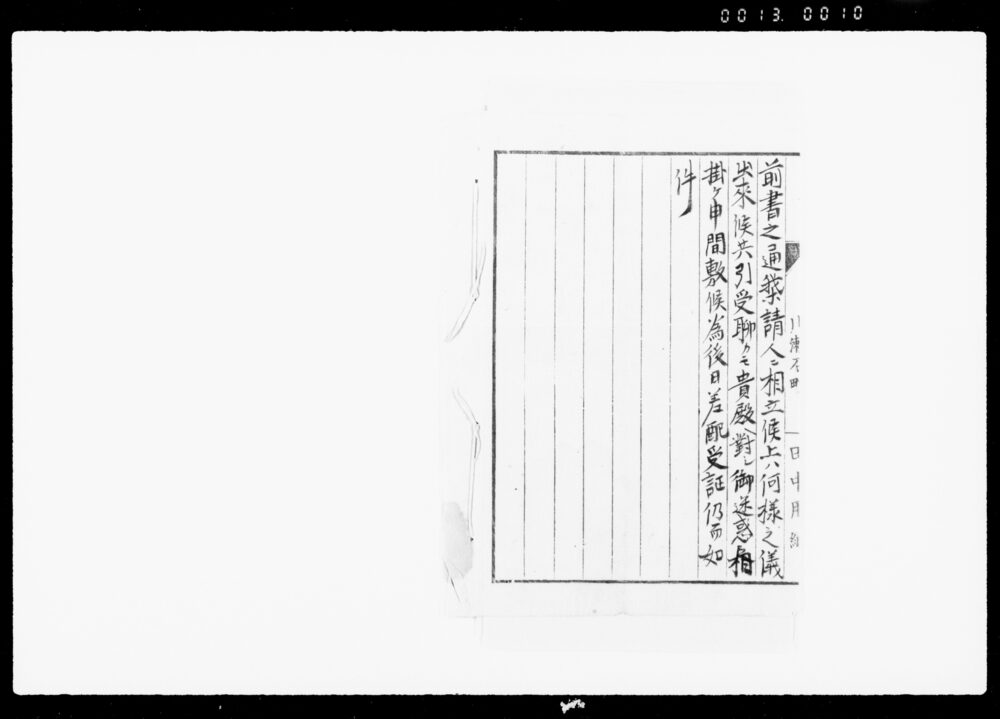 0013.0010
前書之通私請人ニ相立候上ハ何様之儀
出来候共引受聊カモ貴殿ヘ對シ御迷惑相
掛ケ申間敷候為後日差配受証仍而如
件
田中用紙